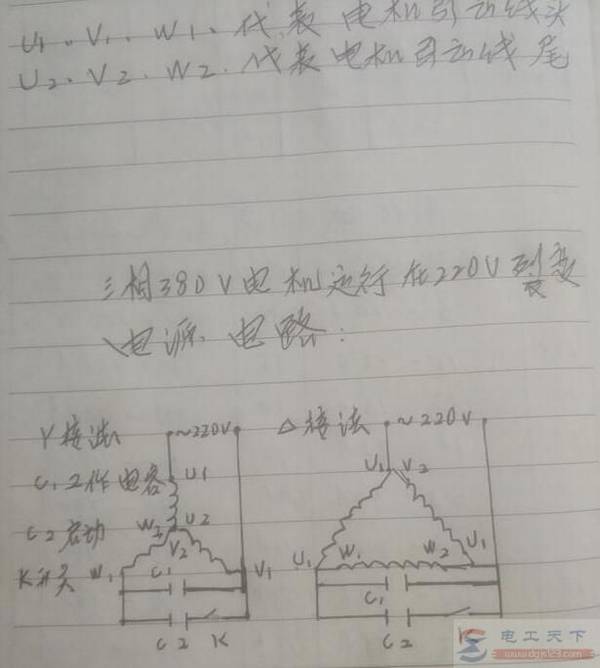 U1、V1、W1、代表 电机引出线头
U2、V2、W2、代表电机引出线尾
三相380V电机运行在220V裂变
电源 电路:
Y接法 ~220V
△接法 ~220V
C1工作电容 U1
U1 V2
C2启动 W2 U2
V2
K开关 W1 C1 V1
U1 W1 W2 U1
C1
C2 K
C2
电工天下
www.dgjs123.com